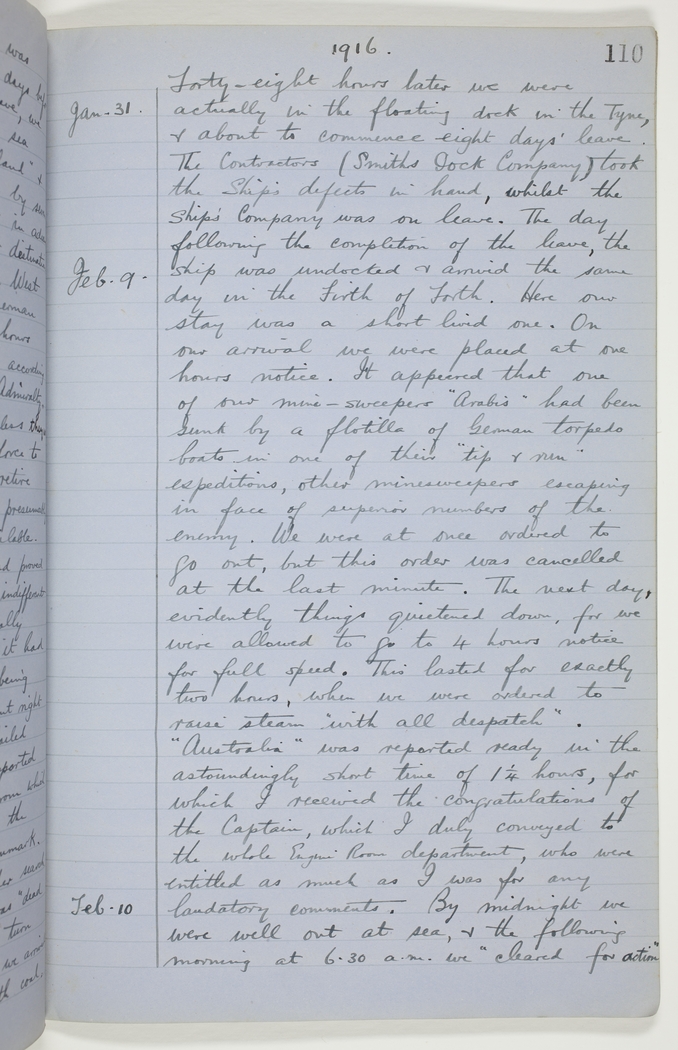 was
days
sea
by
in
West
hours
according
Admiralty
retire
proved
indifferent
it had
being
right
ported
from which
the
"dead
turn
coal,
1916.
110
Forty-eight hours later we were
Jan-31. actually in the floating dock in the Tyne,
& about to commence eight days' leave.
The Contractors (Smiths Dock Company) took
the Ship's defects in hand, whilst the
Ships' Company was on leave. The day
following the completion of the leave, the
Feb. 9. ship was undocked & arrived the same
day in the Firth of Forth. Here our
stay was a short lived one. On
our arrival we were placed at one
hours notice. It appeered that one
of our mine-sweepers "Arabis" had been
sunk by a flotilla of German torpedo
boats in one of their "tip & run"
expeditions, other minesweepers escaping
in face of superior numbers of the
enemy. We were at once ordered to
go out, but this order was cancelled
at the last minute. The next day,
evidently things quietened down, for we
were allowed to go to 4 hours notice
for full speed. This lasted for exactly
two hours, when we were ordered to
raise steam "with all despatch".
"Australia" was reported ready in the
astoundingly short time of 1¼ hours, for
which I received the congratulations of
the Captain, which I duly conveyed to
the whole Engine Room department, who were
entitled as much as I was for any
Feb-10 laudatory comments. By midnight we
were well out at sea, & the following
morning at 6.30 a.m. we "cleared for action"